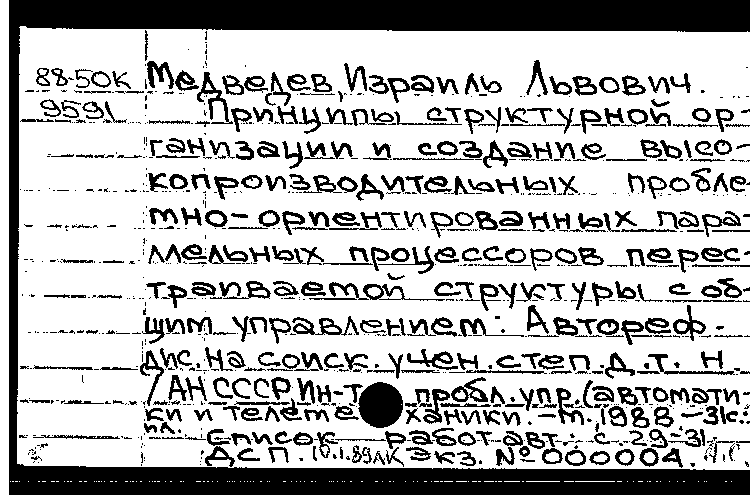 88-50К Медведев, Израиль Львович.
9591 Принципы структурной ор-
ганизации и создание высо-
копроизводительных пробле-
мно-ориентированных пара-
ллельных процессоров перес-
траиваемой структуры с об-
щим управлением: Автореф.
дис. на соиск. учен. степ. д. т. н.
/АН СССР, Ин-т пробл. упр. (автомати-
ки и телемеханики. -М., 1988 -31с.:
ил. Список работ авт.: с. 29-31.
ДСП. 10.1.89 ЭКЗ. № 000004.